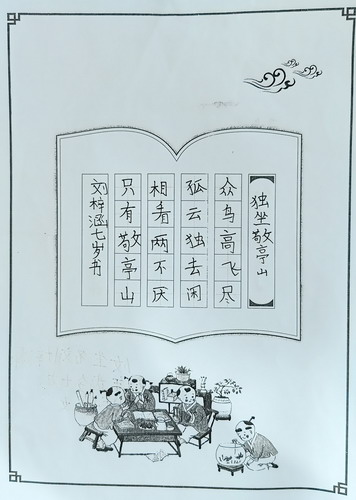 独坐敬亭山
众鸟高飞尽
孤云独去闲
相看两不厌
只有敬亭山
刘梓涵七岁书